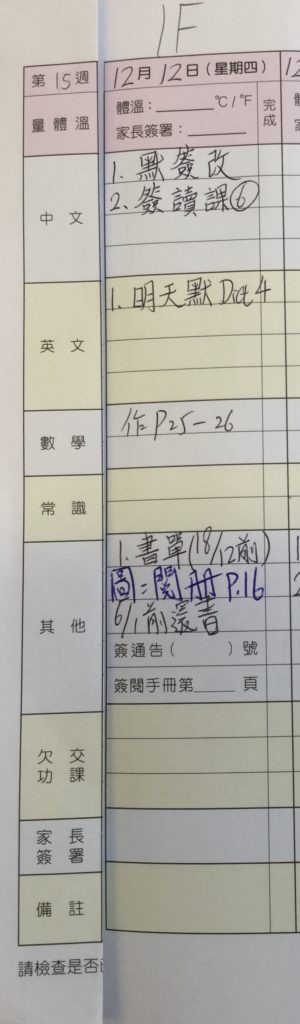 1F
第15週
12月12日(星期四)
量體溫
體溫：______℃/℉
家長簽署：______
完成
中文
1. 默簽改
2. 簽讀課⑥
英文
1. 明天默Dict 4
數學
作P25-26
常識
其他
1. 書單(18/12前)
圖：閱冊P.16
6/1前還書
簽通告(　　)號
簽閱手冊第____頁
欠交功課
家長簽署
備註
請檢查是否